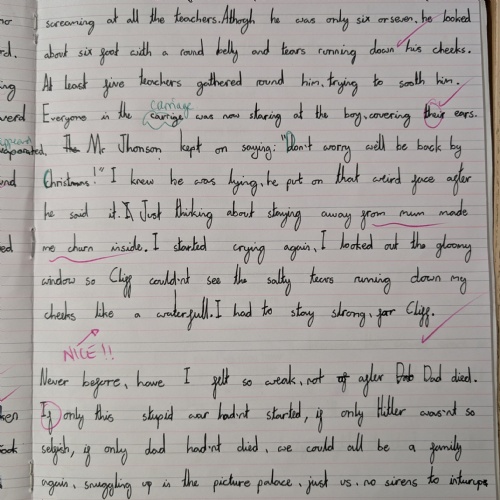 no screaming at all the teachers. Athogh he was only six or seven, he looked
rd. about six foot with a round belly and tears running down his cheeks.
At least five teachers gathered round him, trying to sooth him.
ing Everyone in the carrige was now staring at the boy, covering their ears.
carriage
verd
eaporated. The Mr Jhonson kept on saying: "Don't worry well be back by
und Christmas!" I knew he was lying, he put on that weird face after
he said it. I Just thinking about staying away from mum made
ed me churn inside. I started crying again, I looked out the gloomy
window so Cliff couldn't see the salty tears running down my
cheeks like a waterfull. I had to stay strong, for Cliff.
NICE!!
Never before, have I felt so weak, not of after Dad Dad died.
ken If only this stupid war hadn't started, if only Hitler wasn't so
ook selfish, if only dad hadn't died, we could all be a family
again, snuggling up in the picture palace, just us, no sirens to